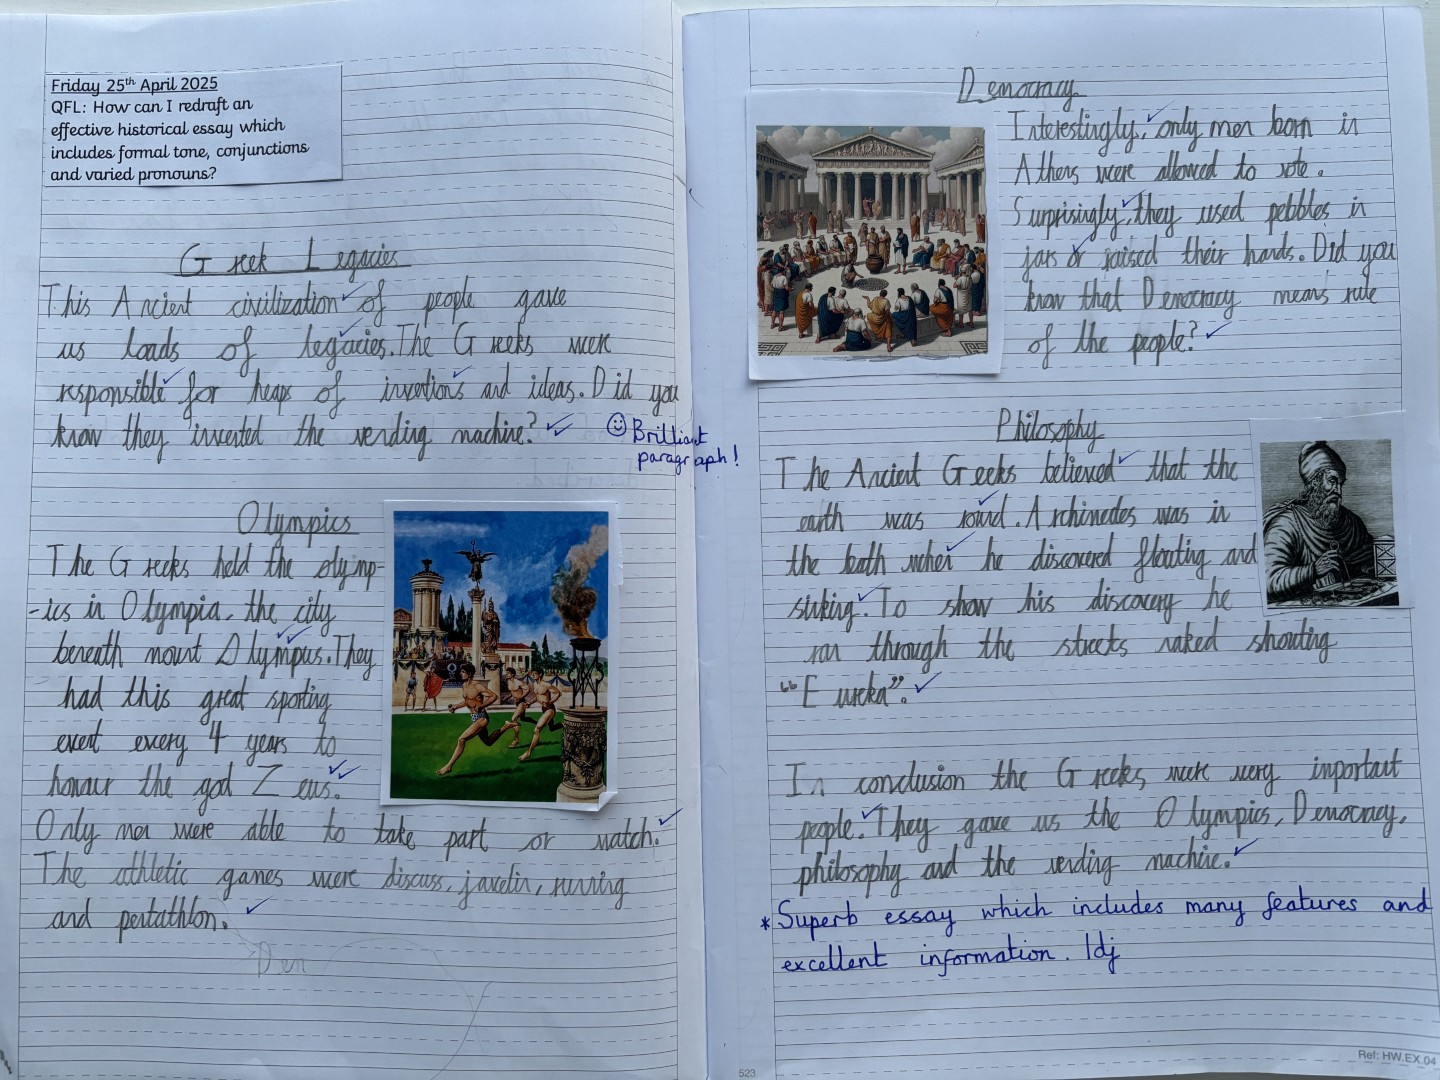 Friday 25th April 2025
QFL: How can I redraft an
effective historical essay which
includes formal tone, conjunctions
and varied pronouns?
Greek Legacies
This Ancient civilization of people gave
us loads of legacies. The Greeks were
responsible for heaps of inventions and ideas. Did you
know they invented the vending machine?
☺ Brilliant
paragraph!
Olympics
The Greeks held the olymp-
-ics in Olympia, the city
beneath mount Olympus. They
had this great sporting
event every 4 years to
honour the god Zeus.
Only men were able to take part or watch.
The athletic games were discuss, javelin, running
and pentathlon.
Den
Democracy
Interestingly, only men born in
Athens were allowed to vote.
Surprisingly, they used pebbles in
jars or raised their hands. Did you
know that Democracy means rule
of the people?
Philosophy
The Ancient Greeks believed that the
earth was round. Archimedes was in
the bath when he discovered floating and
sinking. To show his discovery he
ran through the streets naked shouting
“Eureka”.
In conclusion the Greeks were very important
people. They gave us the Olympics, Democracy,
philosophy and the vending machine.
* Superb essay which includes many features and
excellent information. ldj
523
Ref: HW.EX.04